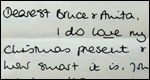 Dearest Bruce & Anita,
I do love my
Christmas present &
how smart it is.